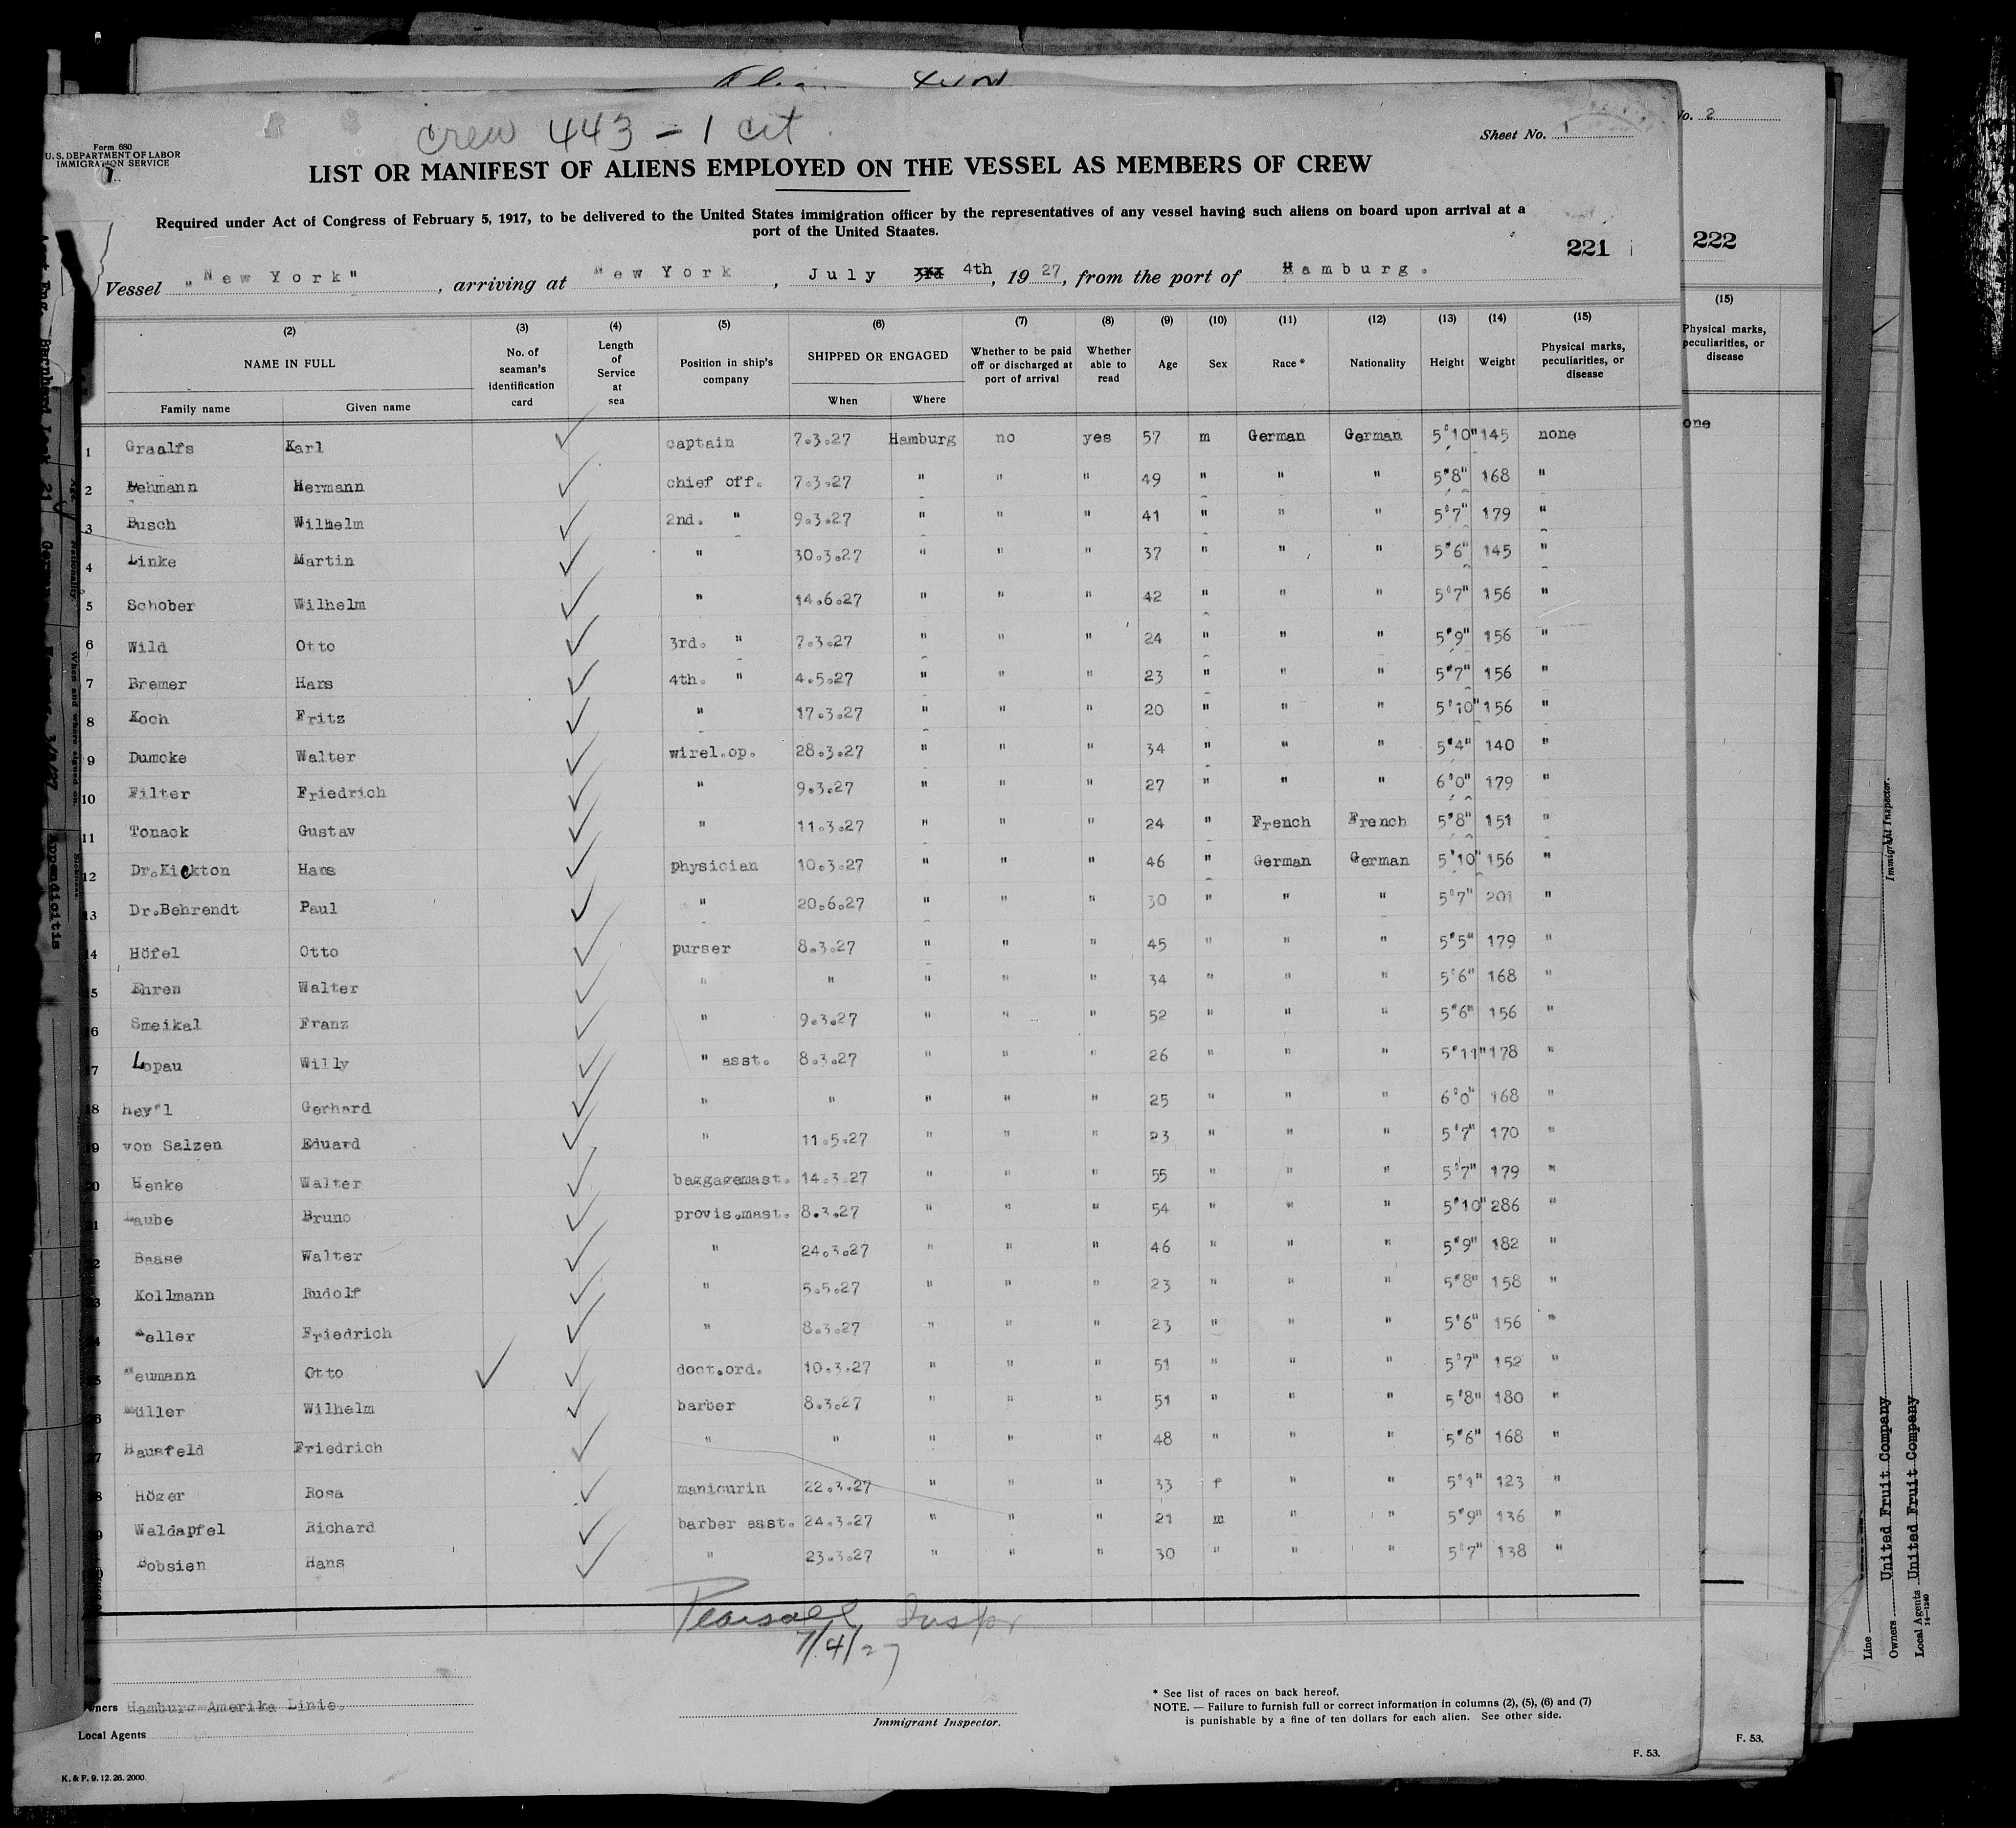 crew 443 - 1 cit.
Form 680
U.S. DEPARTMENT OF LABOR
IMMIGRATION SERVICE
Sheet No. 1
No. 2
LIST OR MANIFEST OF ALIENS EMPLOYED ON THE VESSEL AS MEMBERS OF CREW
Required under Act of Congress of February 5, 1917, to be delivered to the United States immigration officer by the representatives of any vessel having such aliens on board upon arrival at a
port of the United Staates.
221
222
Vessel "New York", arriving at New York, July 3rd 4th, 1927, from the port of Hamburg.
(2) (3) (4) (5) (6) (7) (8) (9) (10) (11) (12) (13) (14) (15)
NAME IN FULL
Family name Given name
No. of seaman's identification card
Length of Service at sea
Position in ship's company
SHIPPED OR ENGAGED
When Where
Whether to be paid off or discharged at port of arrival
Whether able to read
Age Sex Race* Nationality Height Weight
Physical marks, peculiarities, or disease
(15)
Physical marks, peculiarities, or disease
one
1 Graalfs Karl captain 7.3.27 Hamburg no yes 57 m German German 5'10" 145 none
2 Hermann chief off. 7.3.27 " " " 49 " " " 5'8" 168 "
3 Busch Wilhelm 2nd. " 9.3.27 " " " 41 " " " 5'7" 179 "
4 Linke Martin " 30.3.27 " " " 37 " " " 5'6" 145 "
5 Schober Wilhelm " 14.6.27 " " " 42 " " " 5'7" 156 "
6 Wild Otto 3rd. " 7.3.27 " " " 24 " " " 5'9" 156 "
7 Bremer Hans 4th. " 4.5.27 " " " 23 " " " 5'7" 156 "
8 Koch Fritz " 17.3.27 " " " 20 " " " 5'10" 156 "
9 Dumcke Walter wirel.op. 28.3.27 " " " 34 " " " 5'4" 140 "
10 Filter Friedrich " 9.3.27 " " " 27 " " " 6'0" 179 "
11 Tonack Gustav " 11.3.27 " " " 24 " French French 5'8" 151 "
12 Dr.Kiekton Hans physician 10.3.27 " " " 46 " German German 5'10" 156 "
13 Dr.Behrendt Paul " 20.6.27 " " " 30 " " " 5'7" 201 "
14 Höfel Otto purser 8.3.27 " " " 45 " " " 5'5" 179 "
15 Ehren Walter " " " " " 34 " " " 5'6" 168 "
16 Smeikal Franz " 9.3.27 " " " 52 " " " 5'6" 156 "
17 Lopau Willy " asst. 8.3.27 " " " 26 " " " 5'11" 178 "
18 Hey'l Gerhard " " " " " 25 " " " 6'0" 168 "
19 von Salzen Eduard " 11.5.27 " " " 23 " " " 5'7" 170 "
20 Henke Walter baggagemast. 14.3.27 " " " 55 " " " 5'7" 179 "
21 Laube Bruno provis.mast. 8.3.27 " " " 54 " " " 5'10" 286 "
22 Baase Walter " 24.3.27 " " " 46 " " " 5'9" 182 "
23 Kollmann Rudolf " 5.5.27 " " " 23 " " " 5'8" 158 "
24 eller Friedrich " 8.3.27 " " " 23 " " " 5'6" 156 "
25 Neumann Otto doct.ord. 10.3.27 " " " 51 " " " 5'7" 152 "
26 Müller Wilhelm barber 8.3.27 " " " 51 " " " 5'8" 180 "
27 Hausfeld Friedrich " " " " " 48 " " " 5'6" 168 "
28 Höger Rosa manicurin 22.3.27 " " " 33 f " " 5'1" 123 "
29 Waldapfel Richard barber asst. 24.3.27 " " " 21 m " " 5'9" 136 "
Bobsien Hans " 23.3.27 " " " 30 " " " 5'7" 138 "
Pearsall Inspr
7/4/27
Owners Hamburg-Amerika Linie.
Local Agents
Immigrant Inspector.
* See list of races on back hereof.
NOTE. — Failure to furnish full or correct information in columns (2), (5), (6) and (7)
is punishable by a fine of ten dollars for each alien. See other side.
F. 53.
F. 53.
K. & F. 9. 12. 26. 2000.
Immigrant Inspector.
Line
Owners United Fruit Company
Local Agents United Fruit Company
14-1240
Appendicitis